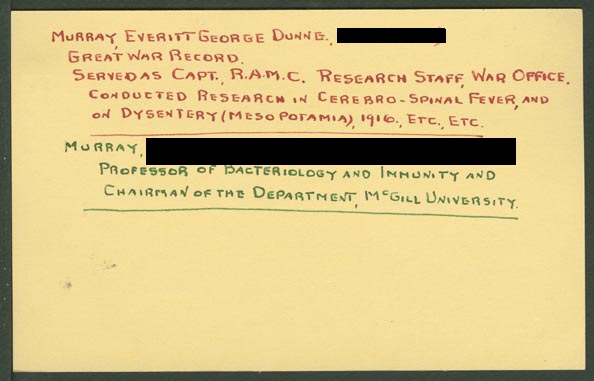 MURRAY, EVERITT GEORGE DUNNE.,
GREAT WAR RECORD.
SERVED AS CAPT., R.A.M.C. RESEARCH STAFF, WAR OFFICE.
CONDUCTED RESEARCH IN CEREBRO-SPINAL FEVER, AND
ON DYSENTERY (MESOPOTAMIA), 1916., ETC., ETC.
MURRAY,
PROFESSOR OF BACTERIOLOGY AND IMMUNITY AND
CHAIRMAN OF THE DEPARTMENT, McGILL UNIVERSITY.